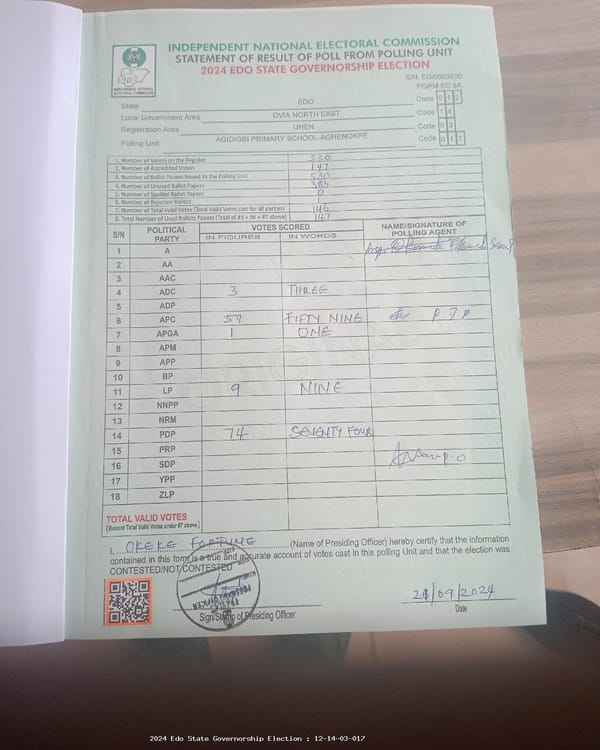 INDEPENDENT NATIONAL ELECTORAL COMMISSION
STATEMENT OF RESULT OF POLL FROM POLLING UNIT
2024 EDO STATE GOVERNORSHIP ELECTION
INDEPENDENT NATIONAL ELECTORAL COMMISSION
S/N: EG/0003600
FORM EC 8A
State EDO Code 012
Local Government Area OVIA NORTH EAST Code 14
Registration Area UHEN Code 03
Polling Unit AGIDIGBI PRIMARY SCHOOL-AGHENOKPE Code 017
1. Number of Voters on the Register 530
2. Number of Accredited Voters 147
3. Number of Ballot Papers Issued to the Polling Unit 530
4. Number of Unused Ballot Papers 383
5. Number of Spoiled Ballot Papers 0
6. Number of Rejected Ballots 1
7. Number of Total Valid Votes (Total Valid Votes cast for all parties) 146
8. Total Number of Used Ballots Papers (Total of #5 + #6 + #7 above) 147
S/N POLITICAL PARTY VOTES SCORED NAME/SIGNATURE OF POLLING AGENT
IN FIGURES IN WORDS
1 A
2 AA
3 AAC
4 ADC 3 THREE
5 ADP
6 APC 59 FIFTY NINE
7 APGA 1 ONE
8 APM
9 APP
10 BP
11 LP 9 NINE
12 NNPP
13 NRM
14 PDP 74 SEVENTY FOUR
15 PRP
16 SDP
17 YPP
18 ZLP
ORIGINAL
TOTAL VALID VOTES
(Record Total Valid Votes under #7 above)
I, OKEKE FORTUNE (Name of Presiding Officer) hereby certify that the information
contained in this form is a true and accurate account of votes cast in this polling Unit and that the election was
CONTESTED/NOT CONTESTED
Sign/Stamp of Presiding Officer
21/09/2024
Date
2024 Edo State Governorship Election : 12-14-03-017